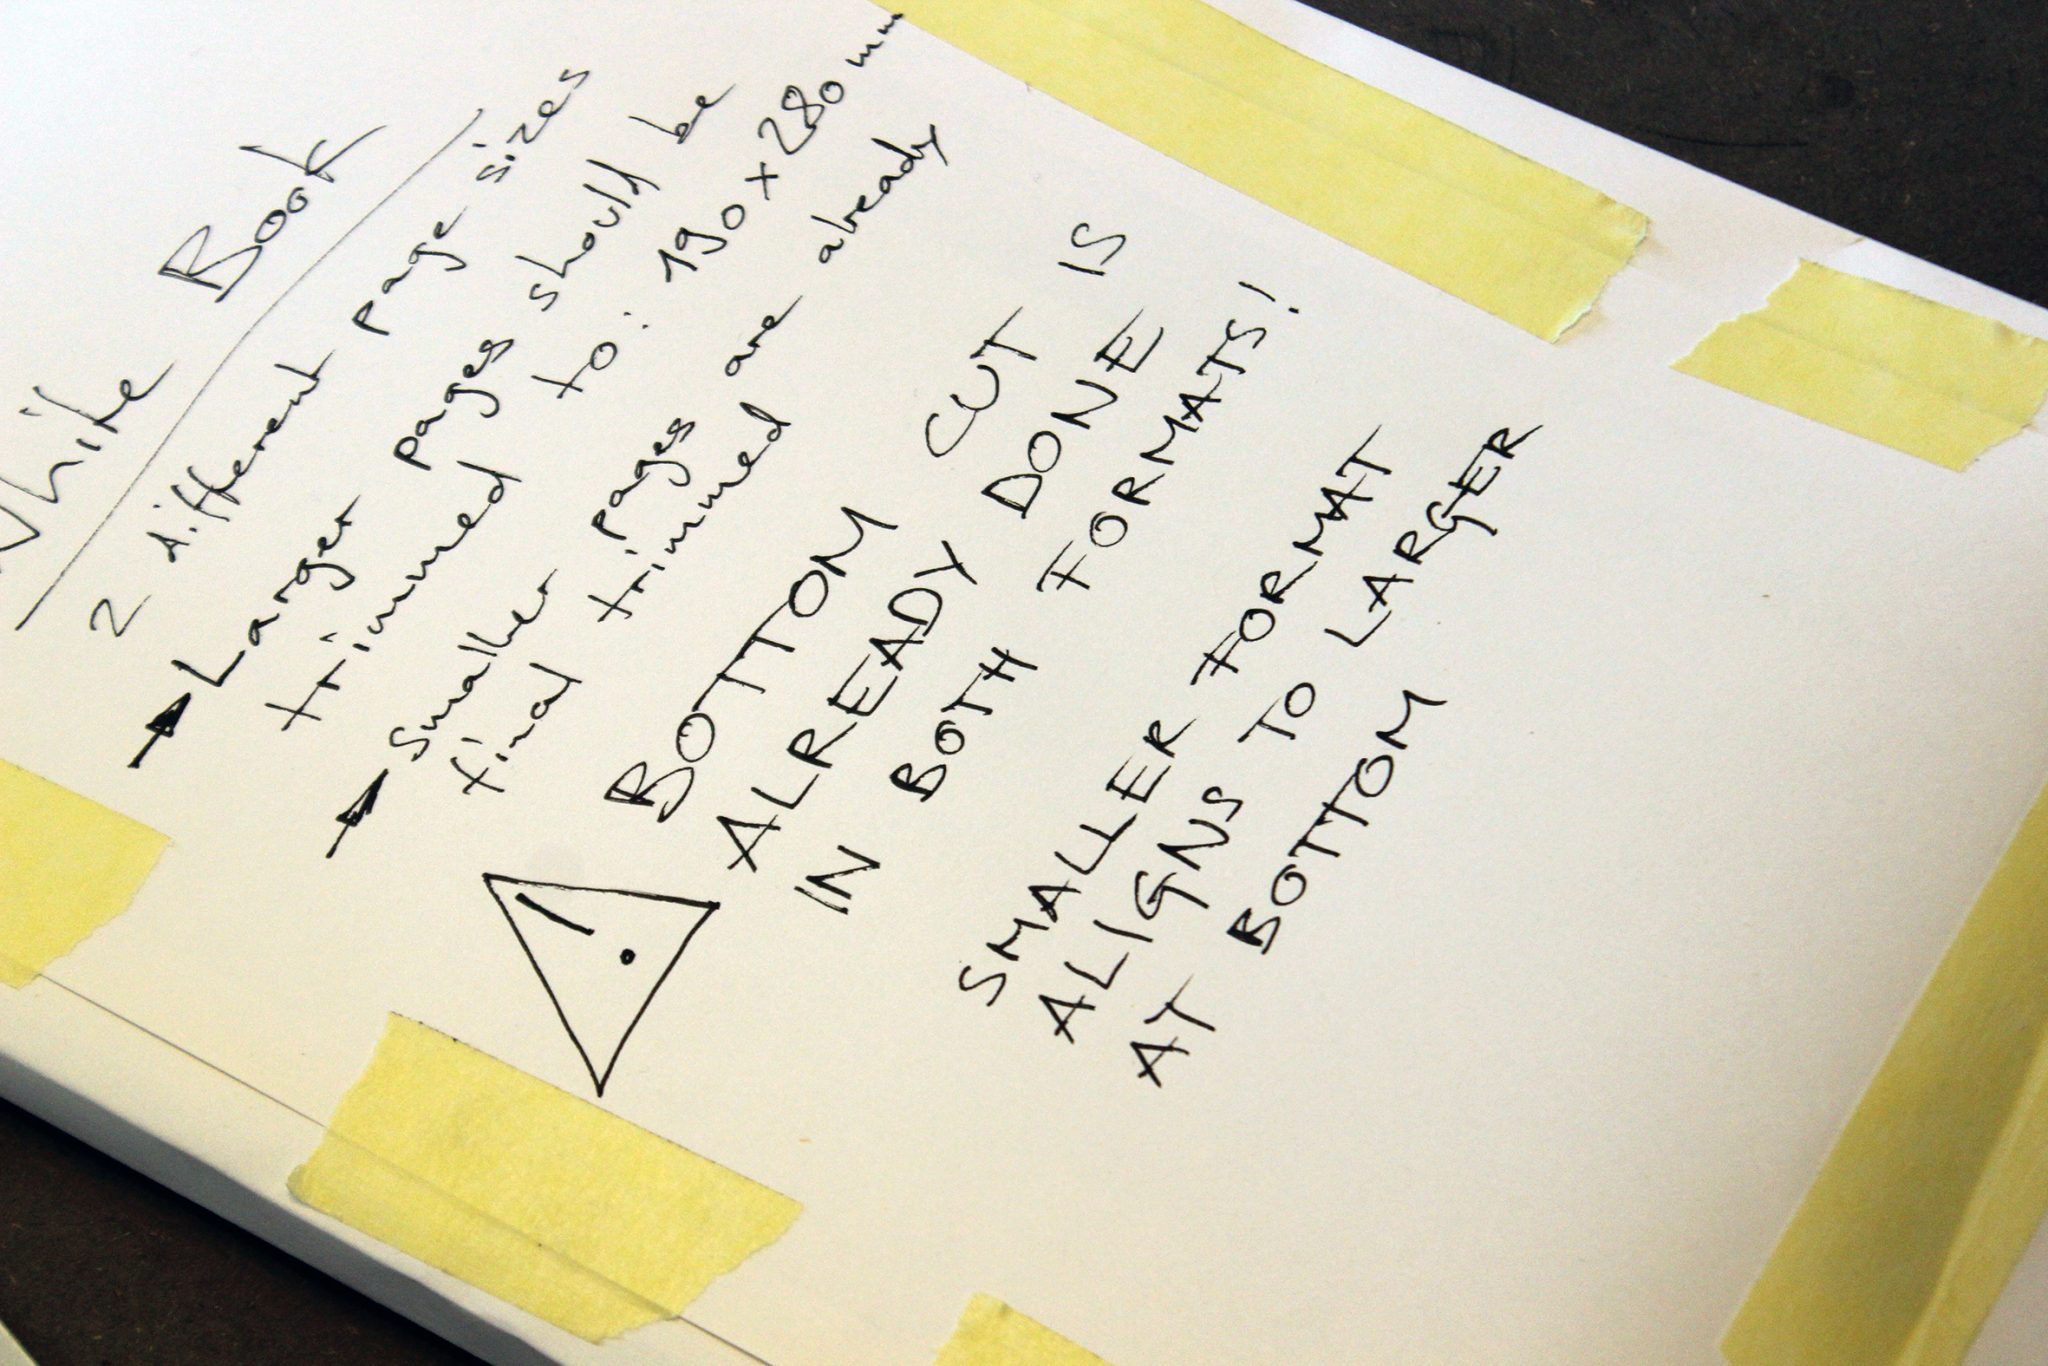 White Book
2 different page sizes
Larger pages should be
trimmed to: 190 x 280 mm
Smaller pages are already
final trimmed
BOTTOM CUT IS
ALREADY DONE
IN BOTH FORMATS!
!
SMALLER FORMAT
ALIGNS TO LARGER
AT BOTTOM